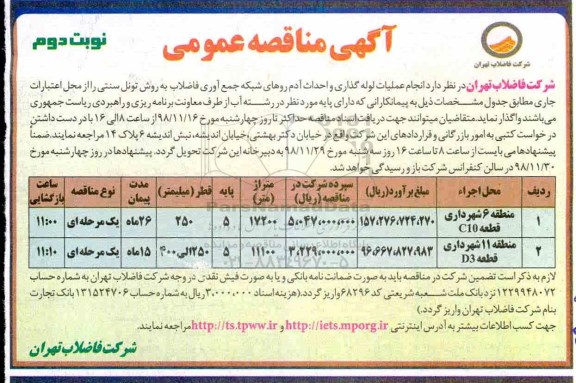 آگهی مناقصه عمومی
نوبت دوم
شرکت فاضلاب تهران
شرکت فاضلاب تهران در نظر دارد انجام عملیات لوله گذاری و احداث آدم روهای شبکه جمع آوری فاضلاب به روش تونل سنتی را از محل اعتبارات
جاری مطابق جدول مشخصات ذیل به پیمانکارانی که دارای پایه مورد نظر در رشته آب از طرف معاونت برنامه ریزی و راهبردی ریاست جمهوری
می‌باشند واگذار نماید. متقاضیان میتوانند جهت دریافت اسناد مناقصه حداکثر تا روز چهارشنبه مورخ ۹۸/۱۱/۱۶ از ساعت ۸ الی ۱۶ با در دست داشتن
درخواست کتبی به امور بازرگانی و قراردادهای این شرکت واقع در خیابان دکتر بهشتی، خیابان اندیشه، نبش اندیشه ۶ پلاک ۱۴ مراجعه نمایند. ضمناً
پیشنهادها می بایست از ساعت ۸ تا ساعت ۱۶ روز سه شنبه مورخ ۹۸/۱۱/۲۹ به دبیرخانه این شرکت تحویل گردد. پیشنهادها در روز چهارشنبه مورخ
۹۸/۱۱/۳۰ در سالن کنفرانس شرکت باز و رسیدگی خواهد شد.
ردیف محل اجراء مبلغ برآورد (ریال) سپرده شرکت در مناقصه (ریال) متراژ (متر) پایه قطر (میلیمتر) مدت پیمان نوع مناقصه ساعت بازگشایی
۱ منطقه ۶ شهرداری قطعه C10 ۱۵۷،۲۷۶،۷۲۴،۲۷۰ ۵،۰۴۷،۰۰۰،۰۰۰ ۱۷۲۰۰ ۵ ۲۵۰ ۲۶ ماه یک مرحله ای ۱۱:۰۰
۲ منطقه ۱۱ شهرداری قطعه D3 ۹۶،۶۶۷،۸۲۷،۹۸۳ ۳،۲۲۹،۰۰۰،۰۰۰ ۱۱۱۰۰ ۵ ۲۵۰ الی ۴۰۰ ۱۵ ماه یک مرحله ای ۱۱:۱۰
لازم به ذکر است تضمین شرکت در مناقصه باید به صورت ضمانت نامه بانکی و یا به صورت فیش نقدی در وجه شرکت فاضلاب تهران به شماره حساب
۱۲۲۹۹۴۸۰۷۲ نزد بانک ملت شعبه شریعتی کد ۶۸۲۹۶ واریز گردد. (هزینه اسناد ۳،۰۰۰،۰۰۰ ریال به شماره حساب ۱۳۱۵۲۴۷۰۶ بانک تجارت
بنام شرکت فاضلاب تهران واریز گردد.)
جهت کسب اطلاعات بیشتر به آدرس اینترنتی http://iets.mporg.ir و http://ts.tpww.ir مراجعه نمایند.
شرکت فاضلاب تهران